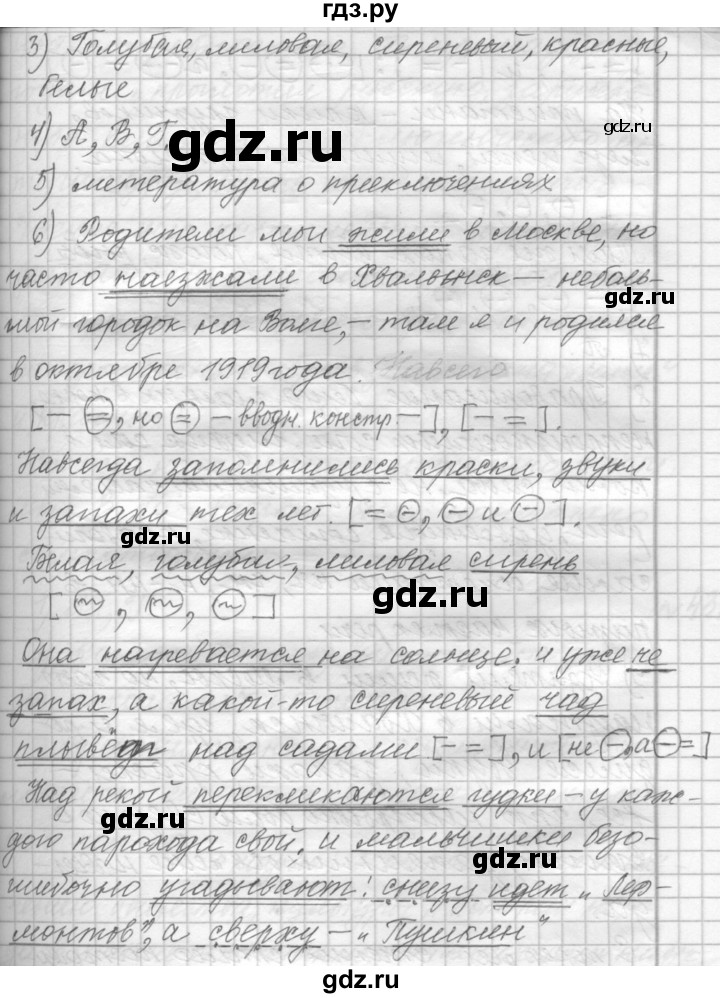 гдз.ру
3) Голубая, лиловая, сиреневый, красные,
белые
gdz.ru
4) А, В, Г.
gdz.ru
5) литература о приключениях
6) Родители мои жили в Москве, но
часто наезжали в Хвалынск — неболь-
gdz.ru
шой городок на Волге, — там я и родился
в октябре 1919 года. Навсего
[— =, но = — вводн. констр. —], [— =].
Навсегда запомнились краски, звуки
и запахи тех лет. [= —, — и —].
gdz.ru
Белая, голубая, лиловая сирень
gdz.ru
[~, ~, ~]
Она нагревается на солнце, и уже не
запах, а какой-то сиреневый чад
плывёт над садами [— =], и [не —, а — =]
gdz.ru
Над рекой перекликаются гудки — у каж-
дого парохода свой, и мальчишки безо-
gdz.ru
шибочно угадывают: снизу идет „Лер-
монтов", а сверху — „Пушкин"
gdz.ru
гдз.ру